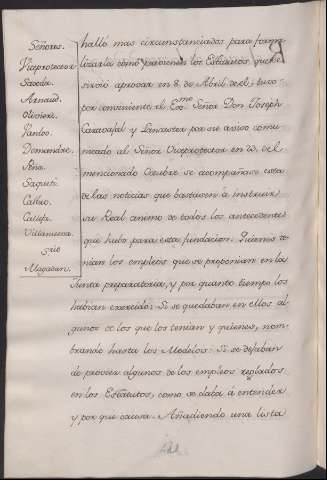 Señores.
Viceprotector
Saveda.
Arnaud.
Olivieri.
Pavia.
Demandre.
Peña.
Sagueti.
Castro.
Calleja.
Villanueva.
Magadan.
halló mas circunstanciados para forma
lizarla como previenen los Estatutos que se
sirvió aprovar en 8. de Abril de el; tuvo
por conveniente el Exc.mo Señor Don Joseph
Caravajal y Lancaster por su aviso comu
nicado al Señor Viceprotector en 20. de el
mencionado Octubre se acompañase esta
de las noticias que bastasen à instruir
su Real animo de todos los antecedentes
que hubo para esta fundacion: Quienes te
nian los empleos que se proponian en la
Junta preparatoria, y por quanto tiempo los
habian exercido: Si se quedaban en ellos al
gunos de los que los tenian y quienes, nom
brando hasta los Modelos: Si se dejaban
de proveer algunos de los empleos reglados
en los Estatutos, como se daba á entender
y por que causa. Añadiendo una lista